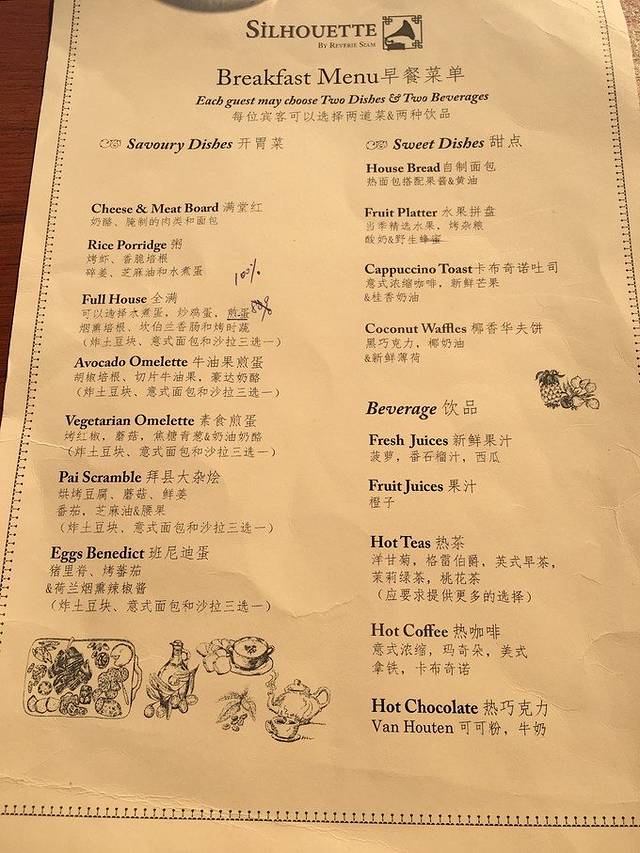 SILHOUETTE
BY REVERIE SIAM
Breakfast Menu早餐菜单
Each guest may choose Two Dishes & Two Beverages
每位宾客可以选择两道菜&两种饮品
Savoury Dishes 开胃菜
Cheese & Meat Board 满堂红
奶酪、腌制的肉类和面包
Rice Porridge 粥
烤虾、香脆培根
碎姜、芝麻油和水煮蛋
100%
Full House 全满
可以选择水煮蛋，炒鸡蛋，煎蛋
烟熏培根、坎伯兰香肠和烤时蔬
（炸土豆块、意式面包和沙拉三选一）
Avocado Omelette 牛油果煎蛋
胡椒培根、切片牛油果，豪达奶酪
（炸土豆块、意式面包和沙拉三选一）
Vegetarian Omelette 素食煎蛋
烤红椒，蘑菇，焦糖青葱&奶油奶酪
（炸土豆块、意式面包和沙拉三选一）
Pai Scramble 拜县大杂烩
烘烤豆腐、蘑菇、鲜姜
番茄，芝麻油&腰果
（炸土豆块、意式面包和沙拉三选一）
Eggs Benedict 班尼迪蛋
猪里脊、烤蕃茄
&荷兰烟熏辣椒酱
（炸土豆块、意式面包和沙拉三选一）
Sweet Dishes 甜点
House Bread自制面包
热面包搭配果酱&黄油
Fruit Platter 水果拼盘
当季精选水果，烤杂粮
酸奶&野生蜂蜜
Cappuccino Toast卡布奇诺吐司
意式浓缩咖啡，新鲜芒果
&桂香奶油
Coconut Waffles 椰香华夫饼
黑巧克力，椰奶油
&新鲜薄荷
Beverage 饮品
Fresh Juices 新鲜果汁
菠萝，番石榴汁，西瓜
Fruit Juices 果汁
橙子
Hot Teas 热茶
洋甘菊，格雷伯爵，英式早茶，
茉莉绿茶，桃花茶
（应要求提供更多的选择）
Hot Coffee 热咖啡
意式浓缩，玛奇朵，美式
拿铁，卡布奇诺
Hot Chocolate 热巧克力
Van Houten 可可粉，牛奶